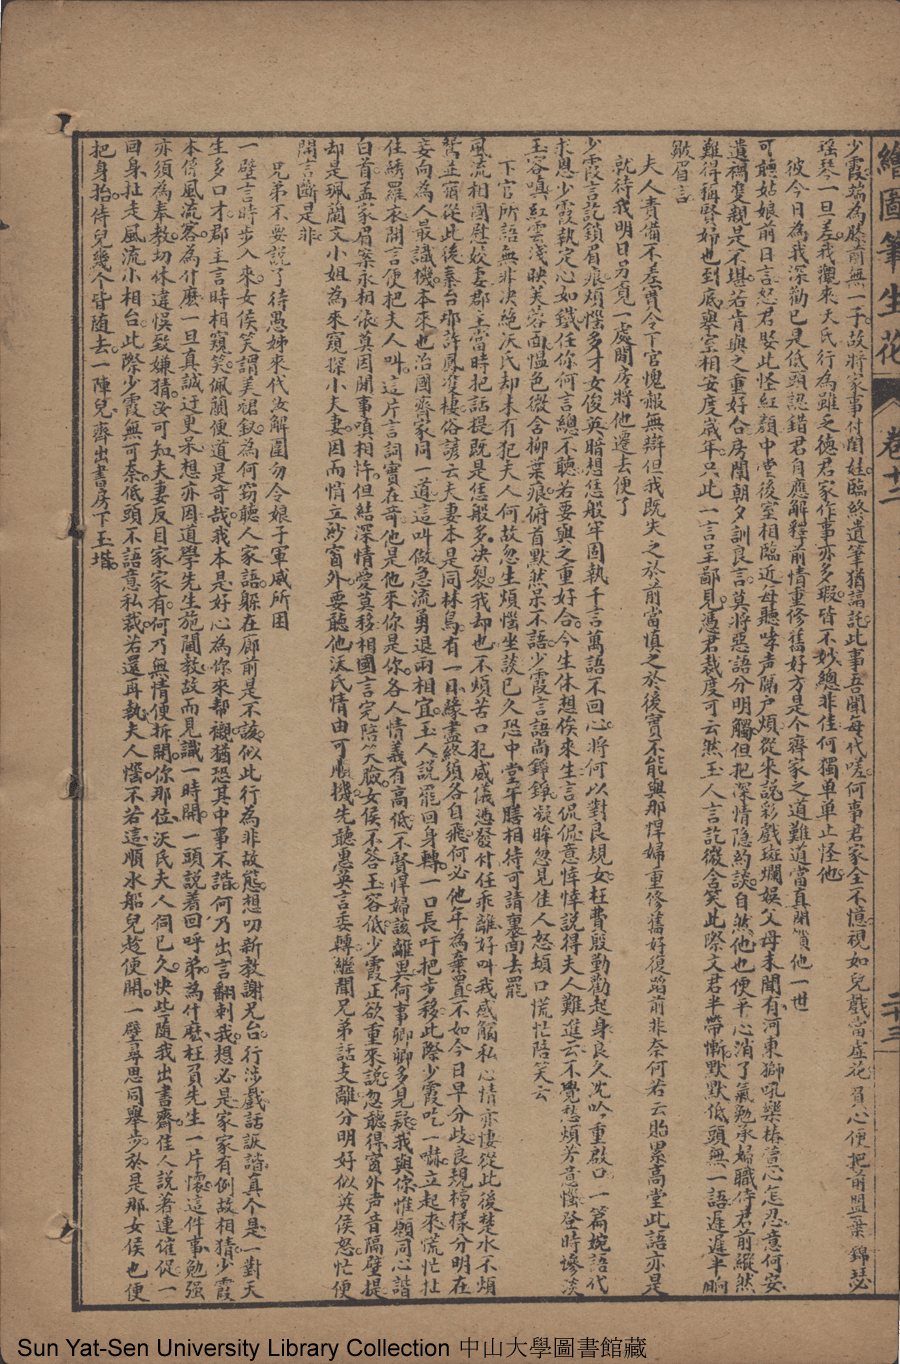 繪圖筆生花 卷十二 二十三
少霞端為膝前無一子故將家事付閨娃臨終遺筆猶諄託此事吾聞每代嗟何事君家全不憶視如兒戲當虛花負心便把前盟棄錦瑟
瑤琴一旦差我觀來夭氏行為雖乏德君家作事亦多瑕皆不妙總非佳何獨單單止怪他
彼今日為我深勸已是低頭認錯君自應解釋前情重修舊好方是个齊家之道難道當真閒嘖他一世
可聽姑娘前日言怨君娶此怪紅顏中堂後室相臨近母聽哮聲隔戶煩從來說彩戲斑斕娛父母未聞有河東獅吼樂椿萱心怎忍意何安
遺禍雙親是不堪若肯與之重好合房闈朝夕訓良言莫將惡語分明觸但把深情隱約談自然他也便平心消了氣勉承婦職侍君前縱然
難得稱賢婦也到底舉室相安度歲年只此一言呈鄙見憑君裁度可云然玉人言訖微含笑此際文君半帶慚默默低頭無一語遲遲半晌
皺眉言
夫人責備不差實令下官愧赧無辯但我既失之於前當慎之於後實不能與那悍婦重修舊好復蹈前非奈何若云貽累高堂此語亦是
就待我明日另覓一處閒房將他遷去便了
少霞言訖鎖眉痕煩惱多才女俊英暗想恁般牢固執千言萬語不回心將何以對良規女枉費殷勤勸起身良久沈吟重啟口一篇婉語代
求恩少霞執定心如鐵任你何言總不聽若要與之重好合今生休想俟來生言侃侃意悻悻說得夫人難進云不覺愁煩芳意懺登時慘淡
玉容嗔紅雲淺映芙蓉面慍色微含柳葉痕俯首默然呆不語少霞言語尚錚錚凝眸忽見佳人怒頓口慌忙陪笑云
下官所語無非決絕沃氏却未有犯夫人何故忽生煩惱坐談已久恐中堂午膳相待可請裏面去罷
風流相國慰姣妻郡主當時把話提既是恁般多決裂我却也不煩苦口犯威儀憑發付任乖離好叫我感觸私心情亦悽從此後楚水不煩
鴛並爾從此後秦台那許鳳凰棲俗諺云夫妻本是同林鳥有一日緣盡終須各自飛何必他年為棄置不如今日早分歧良規榜樣分明在
妾向為人最識機本來也治國齊家同一道這叫做急流勇退兩相宜玉人說罷回身轉一口長吁把步移此際少霞吃一嚇立起來慌忙扯
住綉羅衣開言便把夫人叫這片言詞實在奇他是他來你是你各人情義有高低不賢悍婦該離異何事卿卿多見疑我與你惟願同心諧
白首孟家眉案永相依莫因閒事嗔相忤但結深情愛莫移相國言完陪笑臉女侯不答玉容低少霞正欲重來說忽聽得窗外声音隔壁提
却是珮蘭文小姐為來窺探小夫妻因而悄立紗窗外要聽他沃氏情由可順機先聽愚英言委轉繼聞兄弟話支離分明好似英侯怒忙便
開言斷是非
兄弟不要說了待愚姊來代汝解圍勿令娘子軍威所困
一壁言時步入來女侯笑謂美裙釵為何窃聽人家語躲在廊前是不該似此行為非故態想叨新教謝兄台行涉戲話詼諧真个是一對天
生多口才郡主言時相窺笑佩蘭便道是奇哉我本是好心為你來幫襯猶恐其中事不諧何乃出言翻刺我想必是家家有例故相猜少霞
本係風流客為什麼一旦真誠迂更呆想亦因道學先生施閫教故而見識一時開一頭說着回呼弟為什麼枉負先生一片懷這件事勉強
亦須為奉教切休違悞致嫌猜要可知夫妻反目家家有何乃無情便拆開你那位沃氏夫人伺已久快些隨我出書齋佳人說著連催促一
回身扯走風流小相台此際少霞無可奈低頭不語意私裁若還再執夫人懺不若這順水船兒趁便開一壁尋思同舉步於是那女侯也便
把身抬侍兒幾个皆随去一陣兒齊出書房下玉堦
Sun Yat-Sen University Library Collection 中山大學圖書館藏